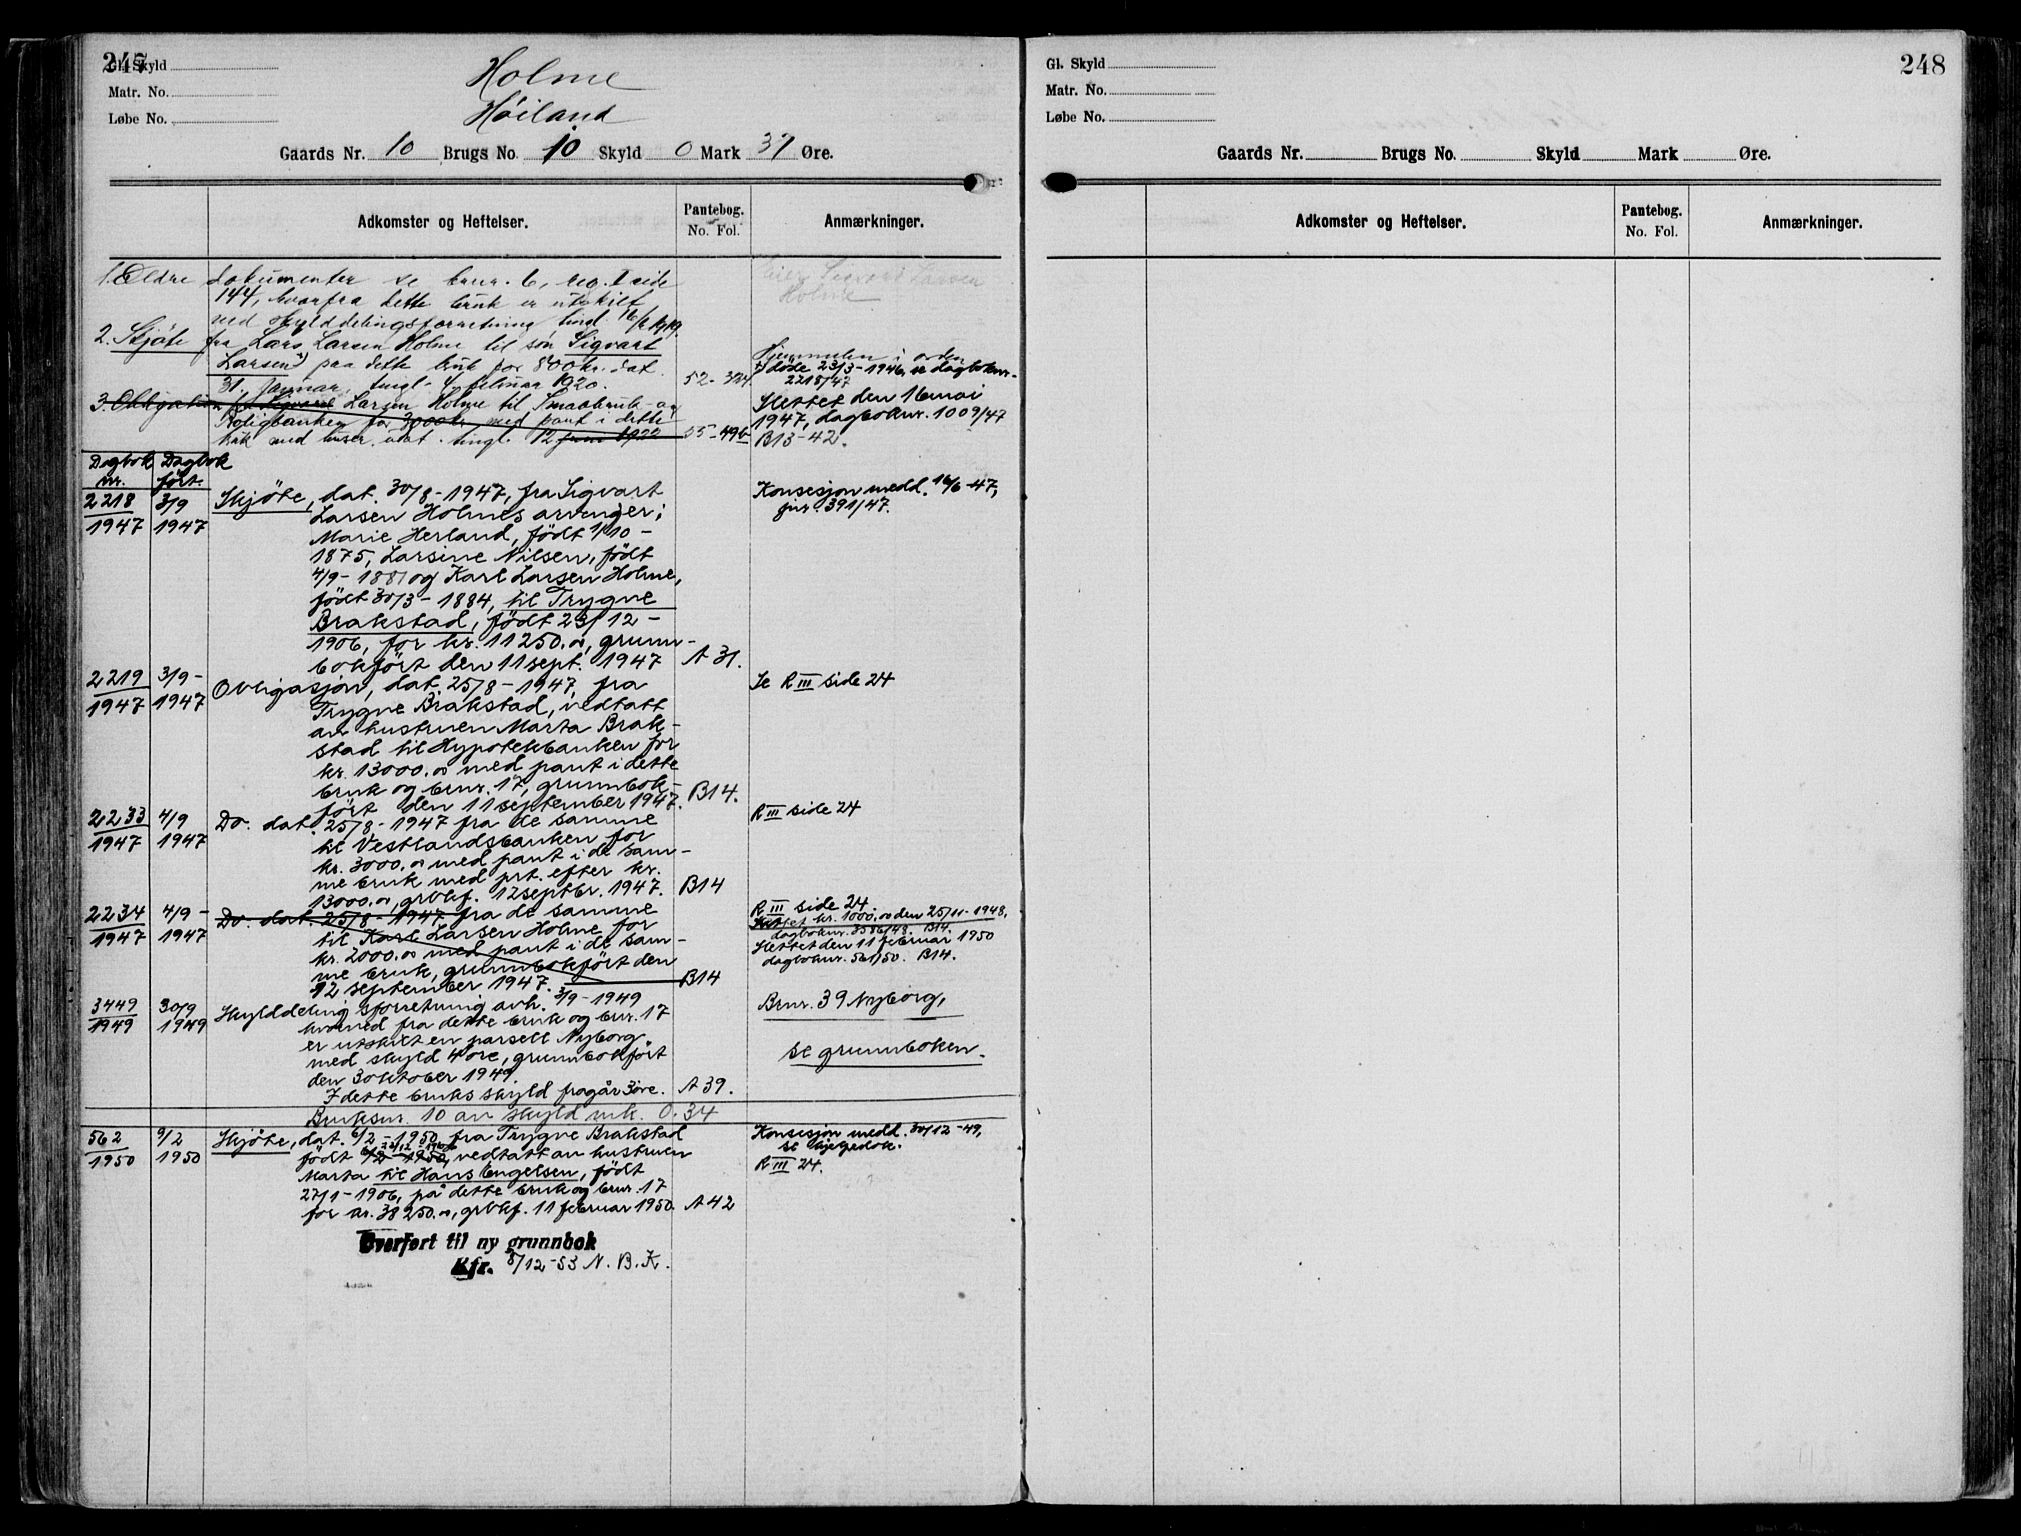 247
Gl. Skyld
Matr. No.
Løbe No.
Holme
Höiland
Gaards Nr. 10 Brugs No 10 Skyld 0 Mark 37 Øre.
Adkomster og Heftelser.
Pantebog.
No. Fol.
Anmærkninger.
1. Eldre dokumenter se brnr. 6, reg. I side
144, hvorfra dette bruk er utskilt
ved skylddelingsforretning tingl.
Holme
2. Skjöte fra Lars Larsen Holme til søn Sigvart
Larsen paa dette bruk for 800 kr. dat.
31. Januar, tingl. 4 februar 1920.
52-324
Hjemmelen i orden
döde 23/3-1946, se dagboknr.
2218/47
3. Obligation fra Sigvart Larsen Holme til Smaabruk- og
Boligbanken for 3000 kr. med pant i dette
bruk med huser. dat. tingl. 12 juni 1922
55-496
Slettet den 16 mai
1947, dagboknr. 1009/47
B13-42.
Dagbok Dagbok
nr. ført.
2218 3/9
1947 1947
Skjöte, dat. 30/8-1947, fra Sigvart
Larsen Holmes arvinger:
Marie Herland, født 1/10-
1875, Larsine Nilsen, født
4/9-1881 og Karl Larsen Holme,
født 30/3-1884, til Trygve
Brakstad, født 23/12-
1906, for kr. 11250.00, grunn-
bokført den 11 sept. 1947
A 31.
Konsesjon medd. 16/6-47,
jnr. 391/47.
2219 3/9-
1947 1947
Obligasjon, dat. 25/8-1947, fra
Trygve Brakstad, vedtatt
av hustruen Marta Brak-
stad til Hypotekbanken for
kr. 13000.00 med pant i dette
bruk og brnr. 17, grunnbok-
ført den 11 september 1947.
B14.
Se R III side 24
2233 4/9
1947 1947
Do. dat. 25/8-1947 fra de samme
til Vestlandsbanken for
kr. 3000.00 med pant i de sam-
me bruk med prt. efter kr.
13000.00, grbkf. 12 septbr. 1947.
B14
R III side 24
2234 4/9-
1947 1947
Do. dat. 25/8-1947 fra de samme
til Karl Larsen Holme for
kr. 2000.00 med pant i de sam-
me bruk, grunnbokført den
12 september 1947.
B14
R III side 24.
Slettet kr. 1000.00 den 25/11-1948,
dagboknr. 3586/48. B14.
Slettet den 11 februar 1950
dagboknr. 561/50. B14.
3449 30/9
1949 1949
Skylddelingsforretning avh. 3/9-1949
hvorved fra dette bruk og brnr. 17
er utskilt en parsell Nyborg
med skyld 4 øre, grunnbokført
den 3 oktober 1949.
I dette bruks skyld fragår 3 øre.
A 39.
Brnr. 39 Nyborg,
se grunnboken.
Bruksnr. 10 av skyld mk. 0.34
562 9/2
1950 1950
Skjöte, dat. 6/2-1950 fra Trygve Brakstad
født 23/12-1906, vedtatt av hustruen
Marta til Hans Engelsen, født
27/1-1906, på dette bruk og brnr. 17
for kr. 38250.00, grbkf. 11 februar 1950.
A 42
Konsesjon medd. 30/12-49,
se hjelpedok.
R III 24.
Overført til ny grunnbok
Kfr. 8/12-53 N. B. K.
248
Gl. Skyld
Matr. No.
Løbe No.
Gaards Nr. Brugs No. Skyld Mark Øre.
Adkomster og Heftelser.
Pantebog.
No. Fol.
Anmærkninger.